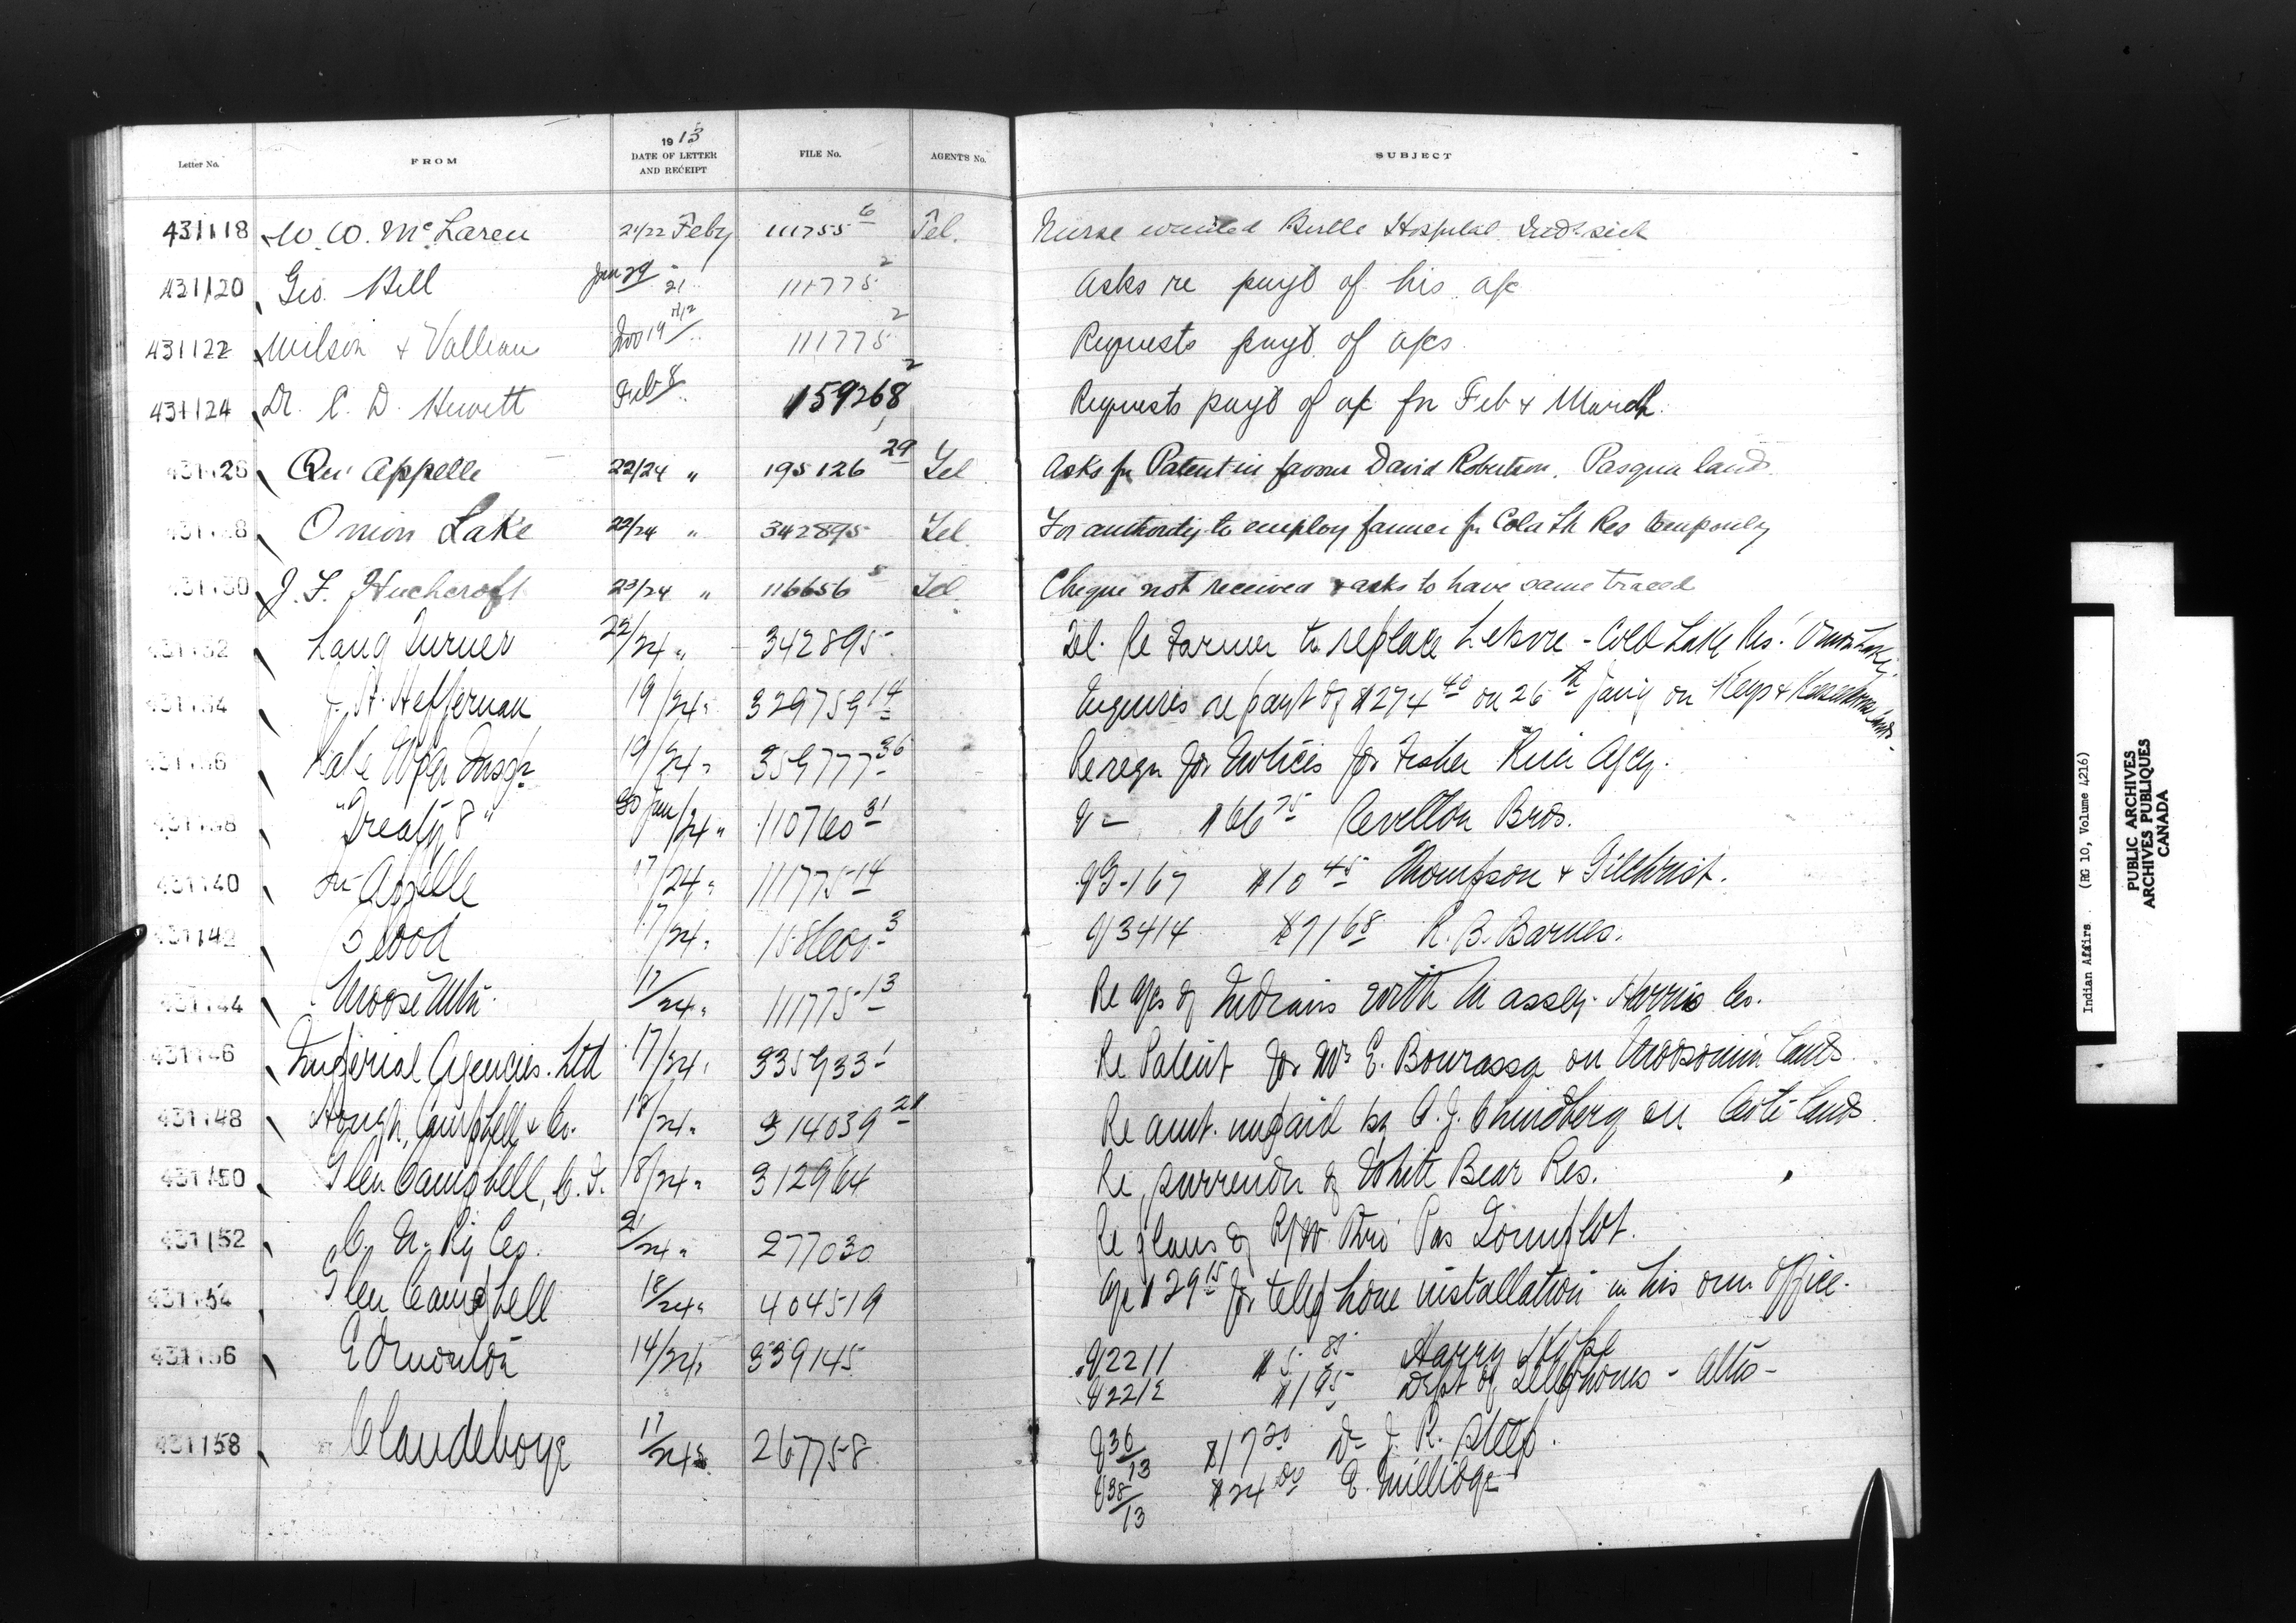 1913
Letter No. FROM DATE OF LETTER AND RECEIPT FILE No. AGENT'S No. SUBJECT
431118 W. W. McLaren 21/22 Feby 111755 6 Tel. Nurse wanted Birtle Hospital
431120 Geo. Hill Jan 29 21 111775 2 Asks re payt of his a/c
431122 Wilson & Valleau Nov 19 1912 111775 2 Requests payt of a/cs
431124 Dr. C. D. Hewett Feb 8 159268 2 Requests payt of a/c for Feb & March.
431126 Qu'Appelle 22/24 " 195126 29 Tel Asks for Patent in favour David Robertson. Pasqua lands
431128 Onion Lake 22/24 " 342895 Tel. For authority to employ farmer for Cold Lk Res temporarily
431130 J. F. Huchcroft 23/24 " 116656 8 Tel. Cheque not received & asks to have same traced
431132 Lang Turner 22/24 " 342895 Tel. re Farmer to replace - Cold Lake Res. Onion Lake
431134 J. H. Heffernan 19/24 " 329759 14 Enquires re payt of $274 40 on 26th Jany on Keys & lands.
431136 19/24 " 359777 36 Re reqn for notices for Fisher River Agcy.
431138 "Treaty 8" 30 Jan/24 " 110760 31 V - $66 75 Revellon Bros.
431140 Qu'Appelle 17/24 " 111775 14 V G-167 $10 45 Thompson & Gilchrist.
431142 Blood 17/24 " 3 V 3414 $71 68 R. B. Barnes.
431144 Moose Mtn. 17/24 " 111775 13 Re a/cs of Indians with Massey-Harris Co.
431146 Imperial Agencies. Ltd 17/24 " 335933 1 Re Patent for E. Bourassa on Moosomin lands.
431148 Hough, Campbell & Co. 18/24 " 314039 21 Re amt. unpaid by on Coté lands.
431150 Glen Campbell, C. I. 18/24 " 312964 Re surrender of White Bear Res.
431152 C. N. Ry Co. 21/24 " 277030 Re plans of R/W thro' Pas
431154 Glen Campbell 18/24 " 404519 a/c $29 15 for telephone installation in his own office.
431156 Edmonton 14/24 " 339145 V 2211 $5. 85 Harry
V 2212 $1 95 Dept of Telephones - Alta -
431158 Clandeboye 17/24 " 267758 V 36/13 $17 20 Dr J. R. Steep.
V 38/13 $24 00 E. Millidge
Indian Affairs. (RG 10, Volume 4216)
PUBLIC ARCHIVES
ARCHIVES PUBLIQUES
CANADA